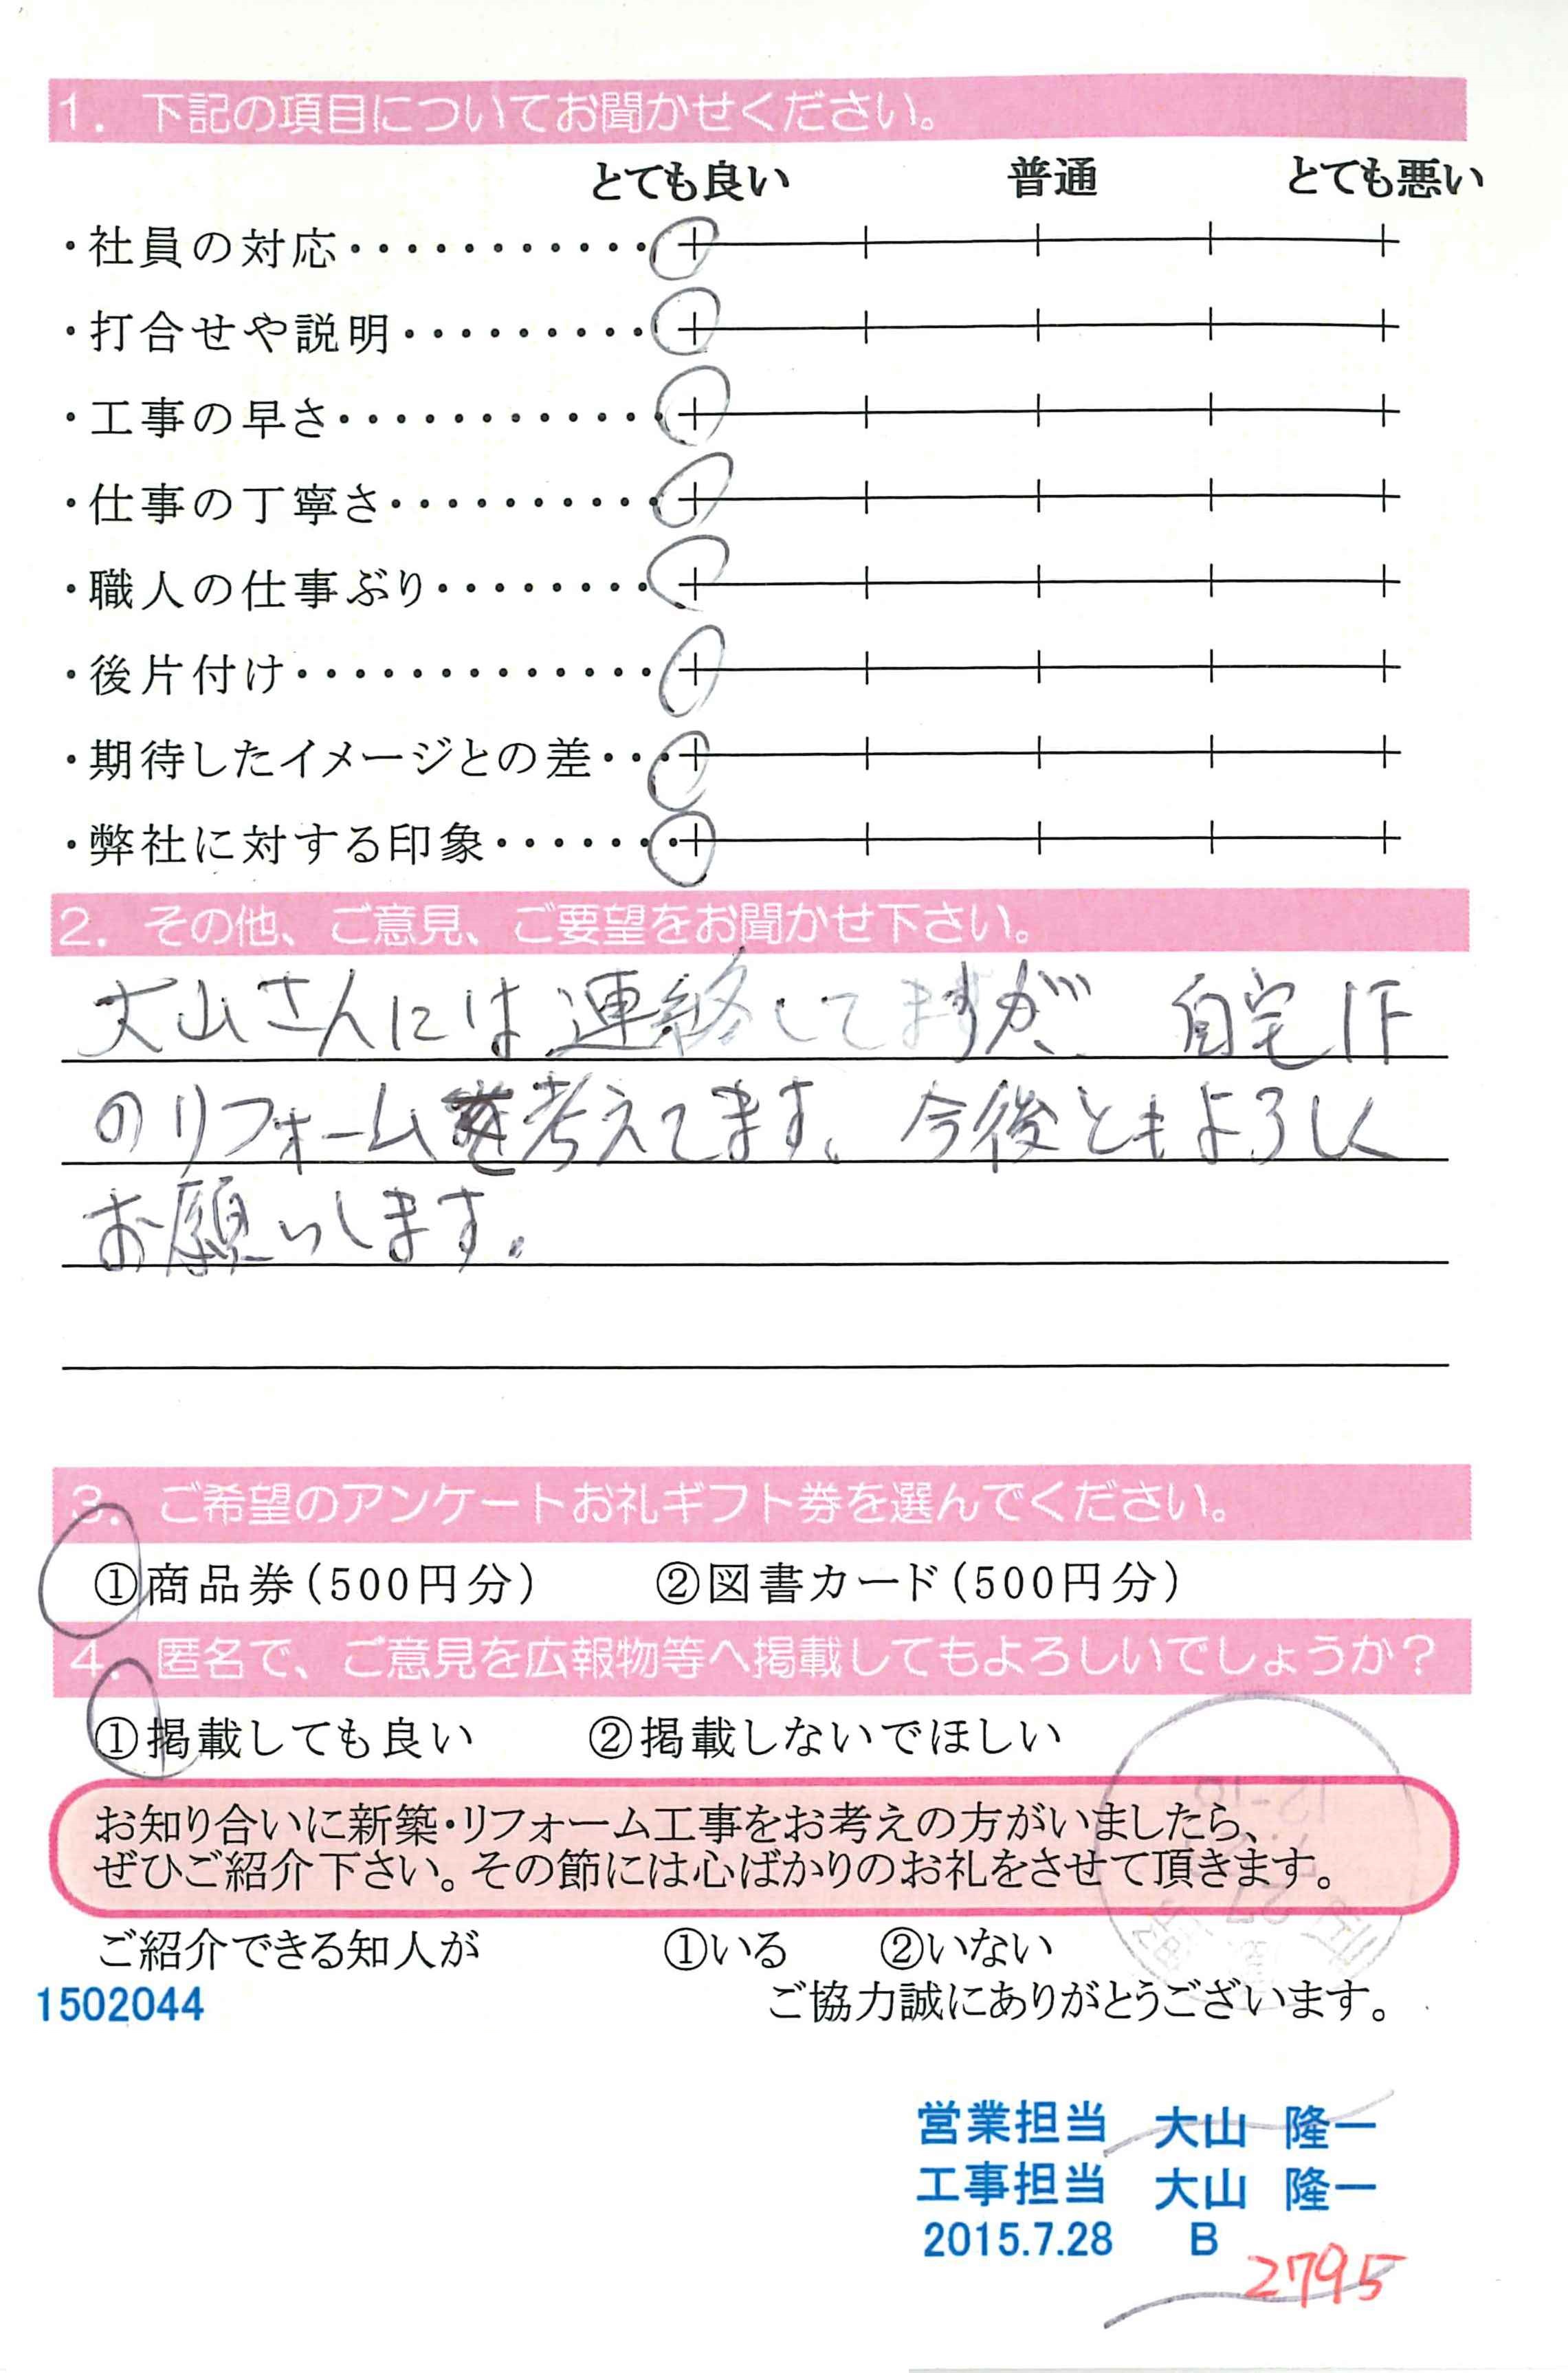 1. 下記の項目についてお聞かせください。
とても良い 普通 とても悪い
・社員の対応・・・・・・・・・・・
・打合せや説明・・・・・・・・・
・工事の早さ・・・・・・・・・・・・
・仕事の丁寧さ・・・・・・・・・・
・職人の仕事ぶり・・・・・・・・
・後片付け・・・・・・・・・・・・・
・期待したイメージとの差・・・
・弊社に対する印象・・・・・・・
2. その他、ご意見、ご要望をお聞かせ下さい。
大山さんには連絡してますが、自宅1F
のリフォームを考えてます。今後ともよろしく
お願いします。
3. ご希望のアンケートお礼ギフト券を選んでください。
①商品券(500円分) ②図書カード(500円分)
4. 匿名で、ご意見を広報物等へ掲載してもよろしいでしょうか?
①掲載しても良い ②掲載しないでほしい
お知り合いに新築・リフォーム工事をお考えの方がいましたら、
ぜひご紹介下さい。その節には心ばかりのお礼をさせて頂きます。
ご紹介できる知人が ①いる ②いない
1502044 ご協力誠にありがとうございます。
営業担当 大山 隆一
工事担当 大山 隆一
2015.7.28 B
2795